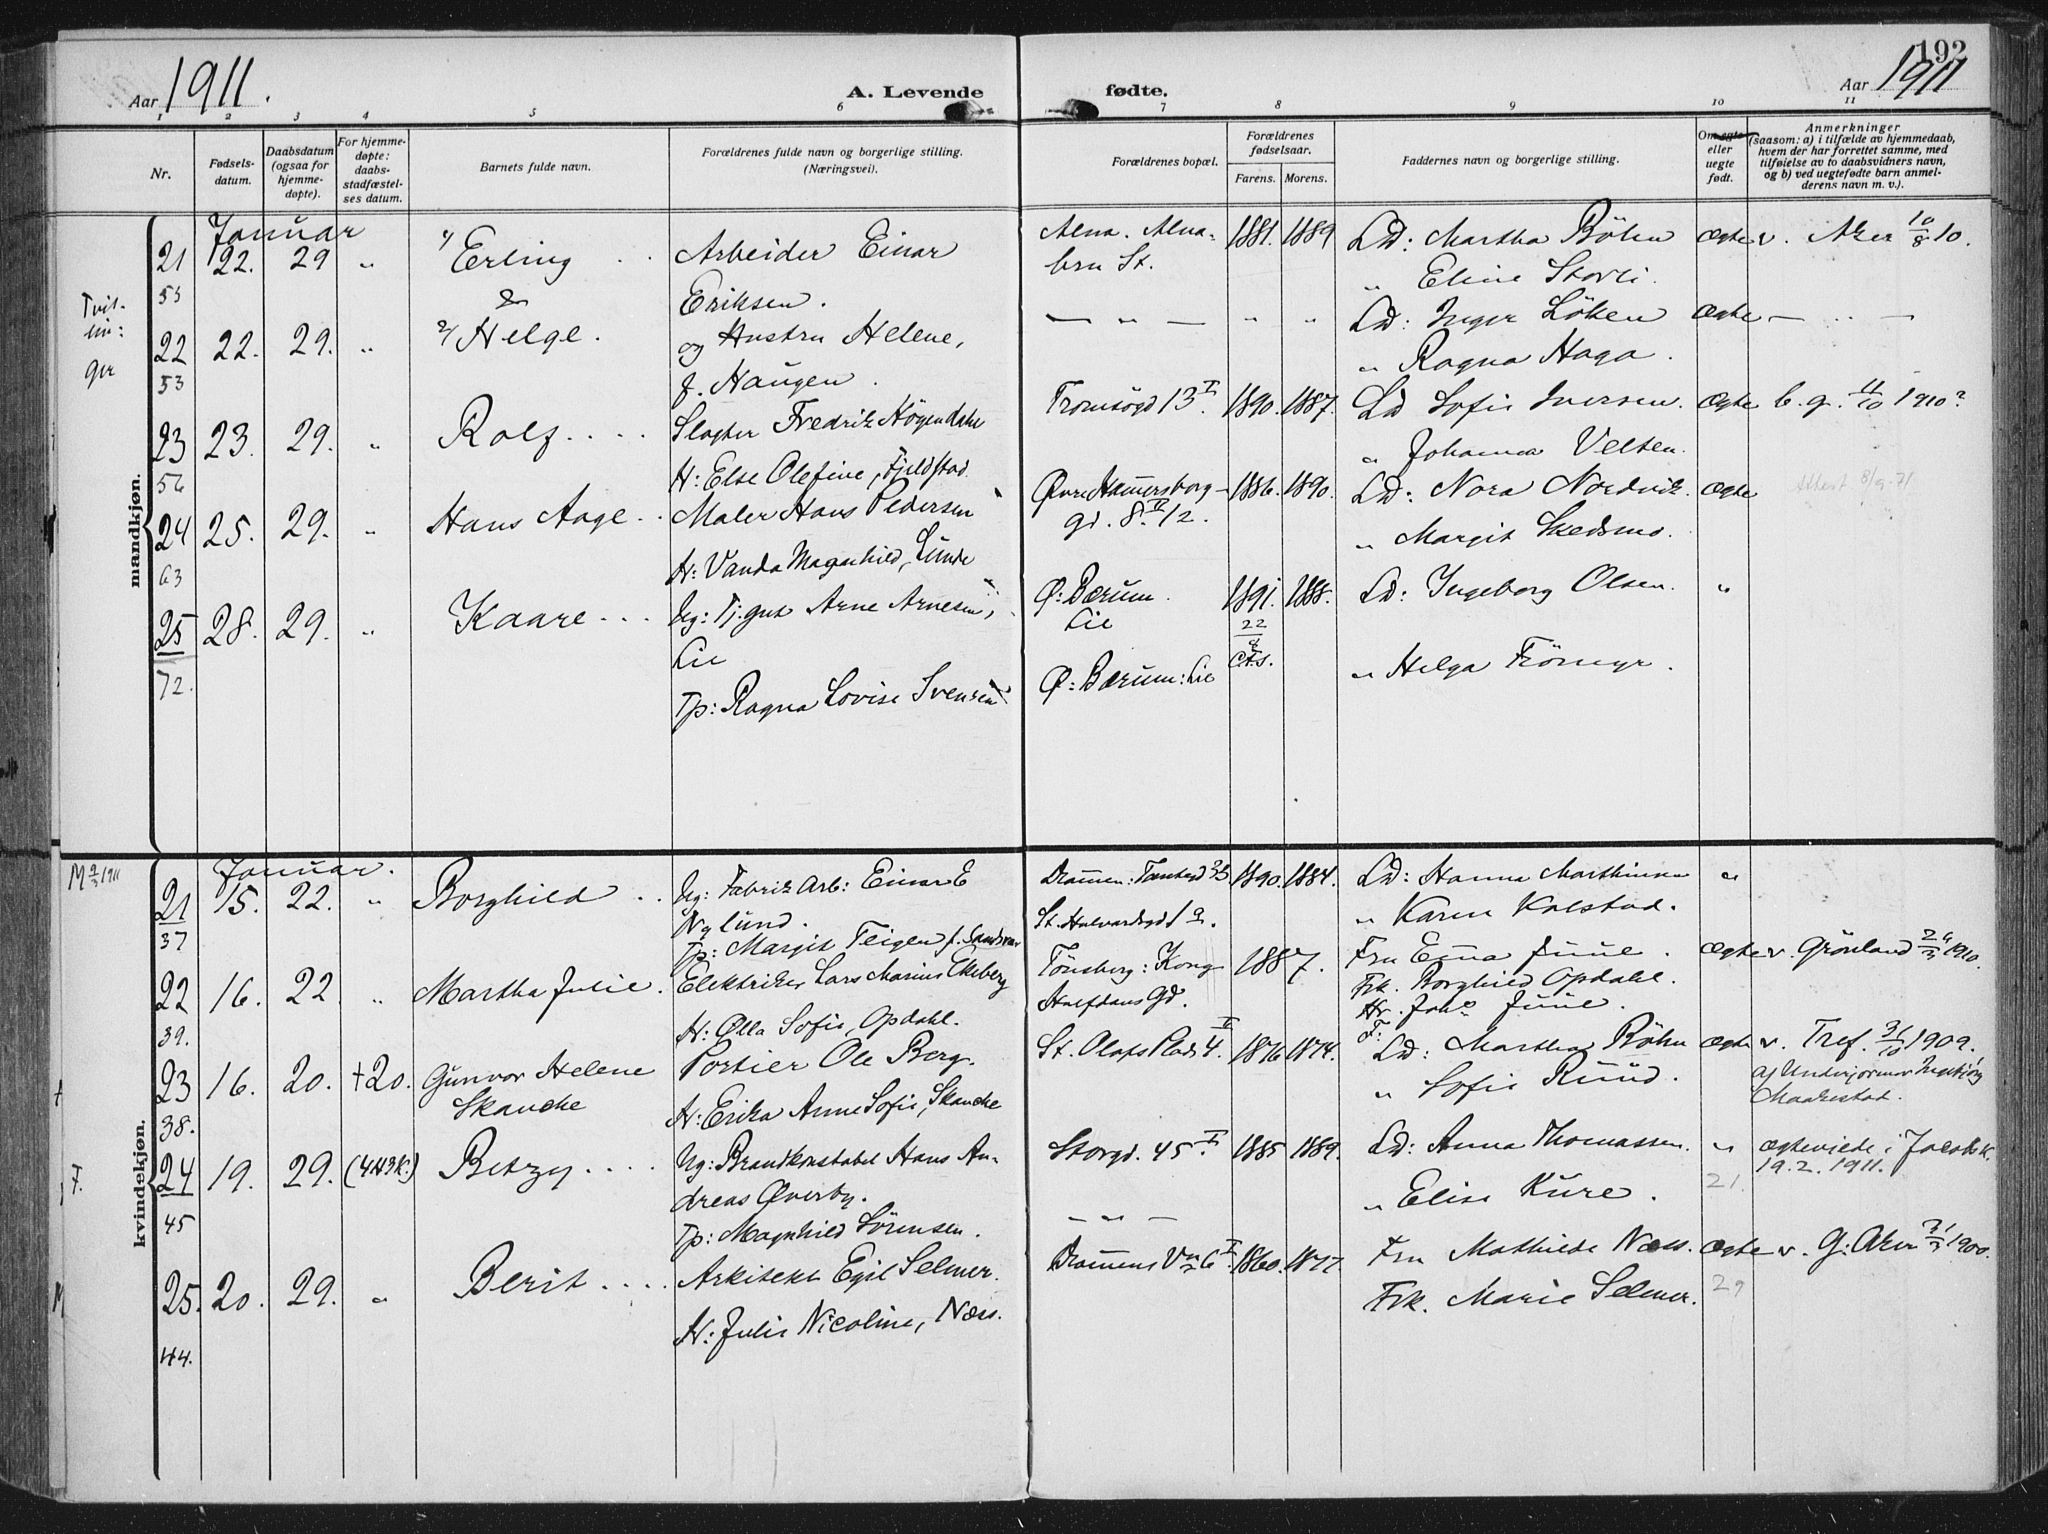 192
Aar 1911.
A. Levende fødte.
Aar 1911
1 2 3 4 5 6 7 8 9 10 11
Nr.
Fødsels-
datum.
Daabsdatum
(ogsaa for
hjemme-
døpte).
For hjemme-
døpte:
daabs-
stadfæstel-
ses datum.
Barnets fulde navn.
Forældrenes fulde navn og borgerlige stilling.
(Næringsvei).
Forældrenes bopæl.
Forældrenes
fødselsaar.
Farens. Morens.
Faddernes navn og borgerlige stilling.
Om ægte
eller
uegte
født.
Anmerkninger
(saasom: a) i tilfælde av hjemmedaab,
hvem der har forrettet samme, med
tilføielse av to daabsvidners navn,
og b) ved uegtefødte barn anmel-
derens navn m. v.).
mandkjøn.
Januar
Tvil-
lin:
ger
21 22. 29 " 1/ Erling . . Arbeider Einar Alna. Alna- 1881. 1889 Ld: Martha Böhn Ægte v. Aker 10/8 10.
55 & Eriksen. bru St. " Eline Storli.
22 22. 29. " 2/ Helge. og Hustru Helene, — " — " " Ld: Inger Löken Ægte — " —
53 f. Haugen. " Ragna Haga.
23 23. 29. " Rolf . . . . Slagter Fredrik Högendahl Tromsögd 13 I. 1890. 1887. Ld Sofie Iversen. Ægte b. g. 11/10 1910?
56 H: Else Olefine, Fjeldstad. " Johanna Velten.
24 25. 29. " Hans Aage . . Maler Hans Pedersen Øvre Hammersborg- 1886. 1890. Ld: Nora Nordvik. Ægte Attest 8/9.71
63 H: Vanda Magnhild, Lunde gd. 8. II 12. " Margit Skedsmo.
25 28. 29. " Kaare . . . Ug: Tj.gut Arne Arnesen, Ø: Bærum. 1891. 1888. Ld: Ingeborg Olsen. "
72. Lie Lie 22
Tp: Ragna Lovise Svensen Ø: Bærum: Lie " Helga Frömyr.
kvindekjøn.
Januar.
M 9/3 1911
21 15. 22. " Borghild . . Ug: Fabrik Arb: Einar E Drammen: Tomtegd 35 1890. 1884. Ld: Hanna Marthinsen "
37 Nylund. St. Halvardsgd 1 a. " Karen Kolstad.
Tp: Margit Teigen f. Sandsvær
22 16. 22. " Martha Julie. Elektriker Lars Marius Ekeberg Tönsberg: Kong 1887. Fru Emma Juul. Ægte v. Grönland 1910.
39. H: Olla Sofie, Opdahl. Halfdans Gd. Frk. Borghild Opdahl.
Hr. Johs Juul.
23 16. 20. +20. Gunvor Helene Portier Ole Berg. St. Olafs Plads 4. II 1876 1874. F: Ld: Martha Böhn Ægte v. Tref. 31/10 1909.
38. Skancke H: Erika Anne Sofie, Skancke " Sofie Ruud. af Underjormor Ingebjørg
Maakestad.
24 19. 29. Betzy . . . . Ug: Brandkonstabel Hans An- Storgd. 45 I 1885 1889. Ld: Anna Thomassen. " Ægteviede i Jacobs k.
45 dreas Øverby. " Elise Kure. 21. 19.2.1911.
Tp: Magnhild Sörensen. — " —
25. 20. 29. " Berit . . . . Arkitekt Egil Selmer. Drammens Vn 6 I 1860. 1877. Fru Mathilde Næss. Ægte v. G: Aker 31/3 1900.
44. H: Julie Nicoline, Næss. Frk. Marie Selmer. 29